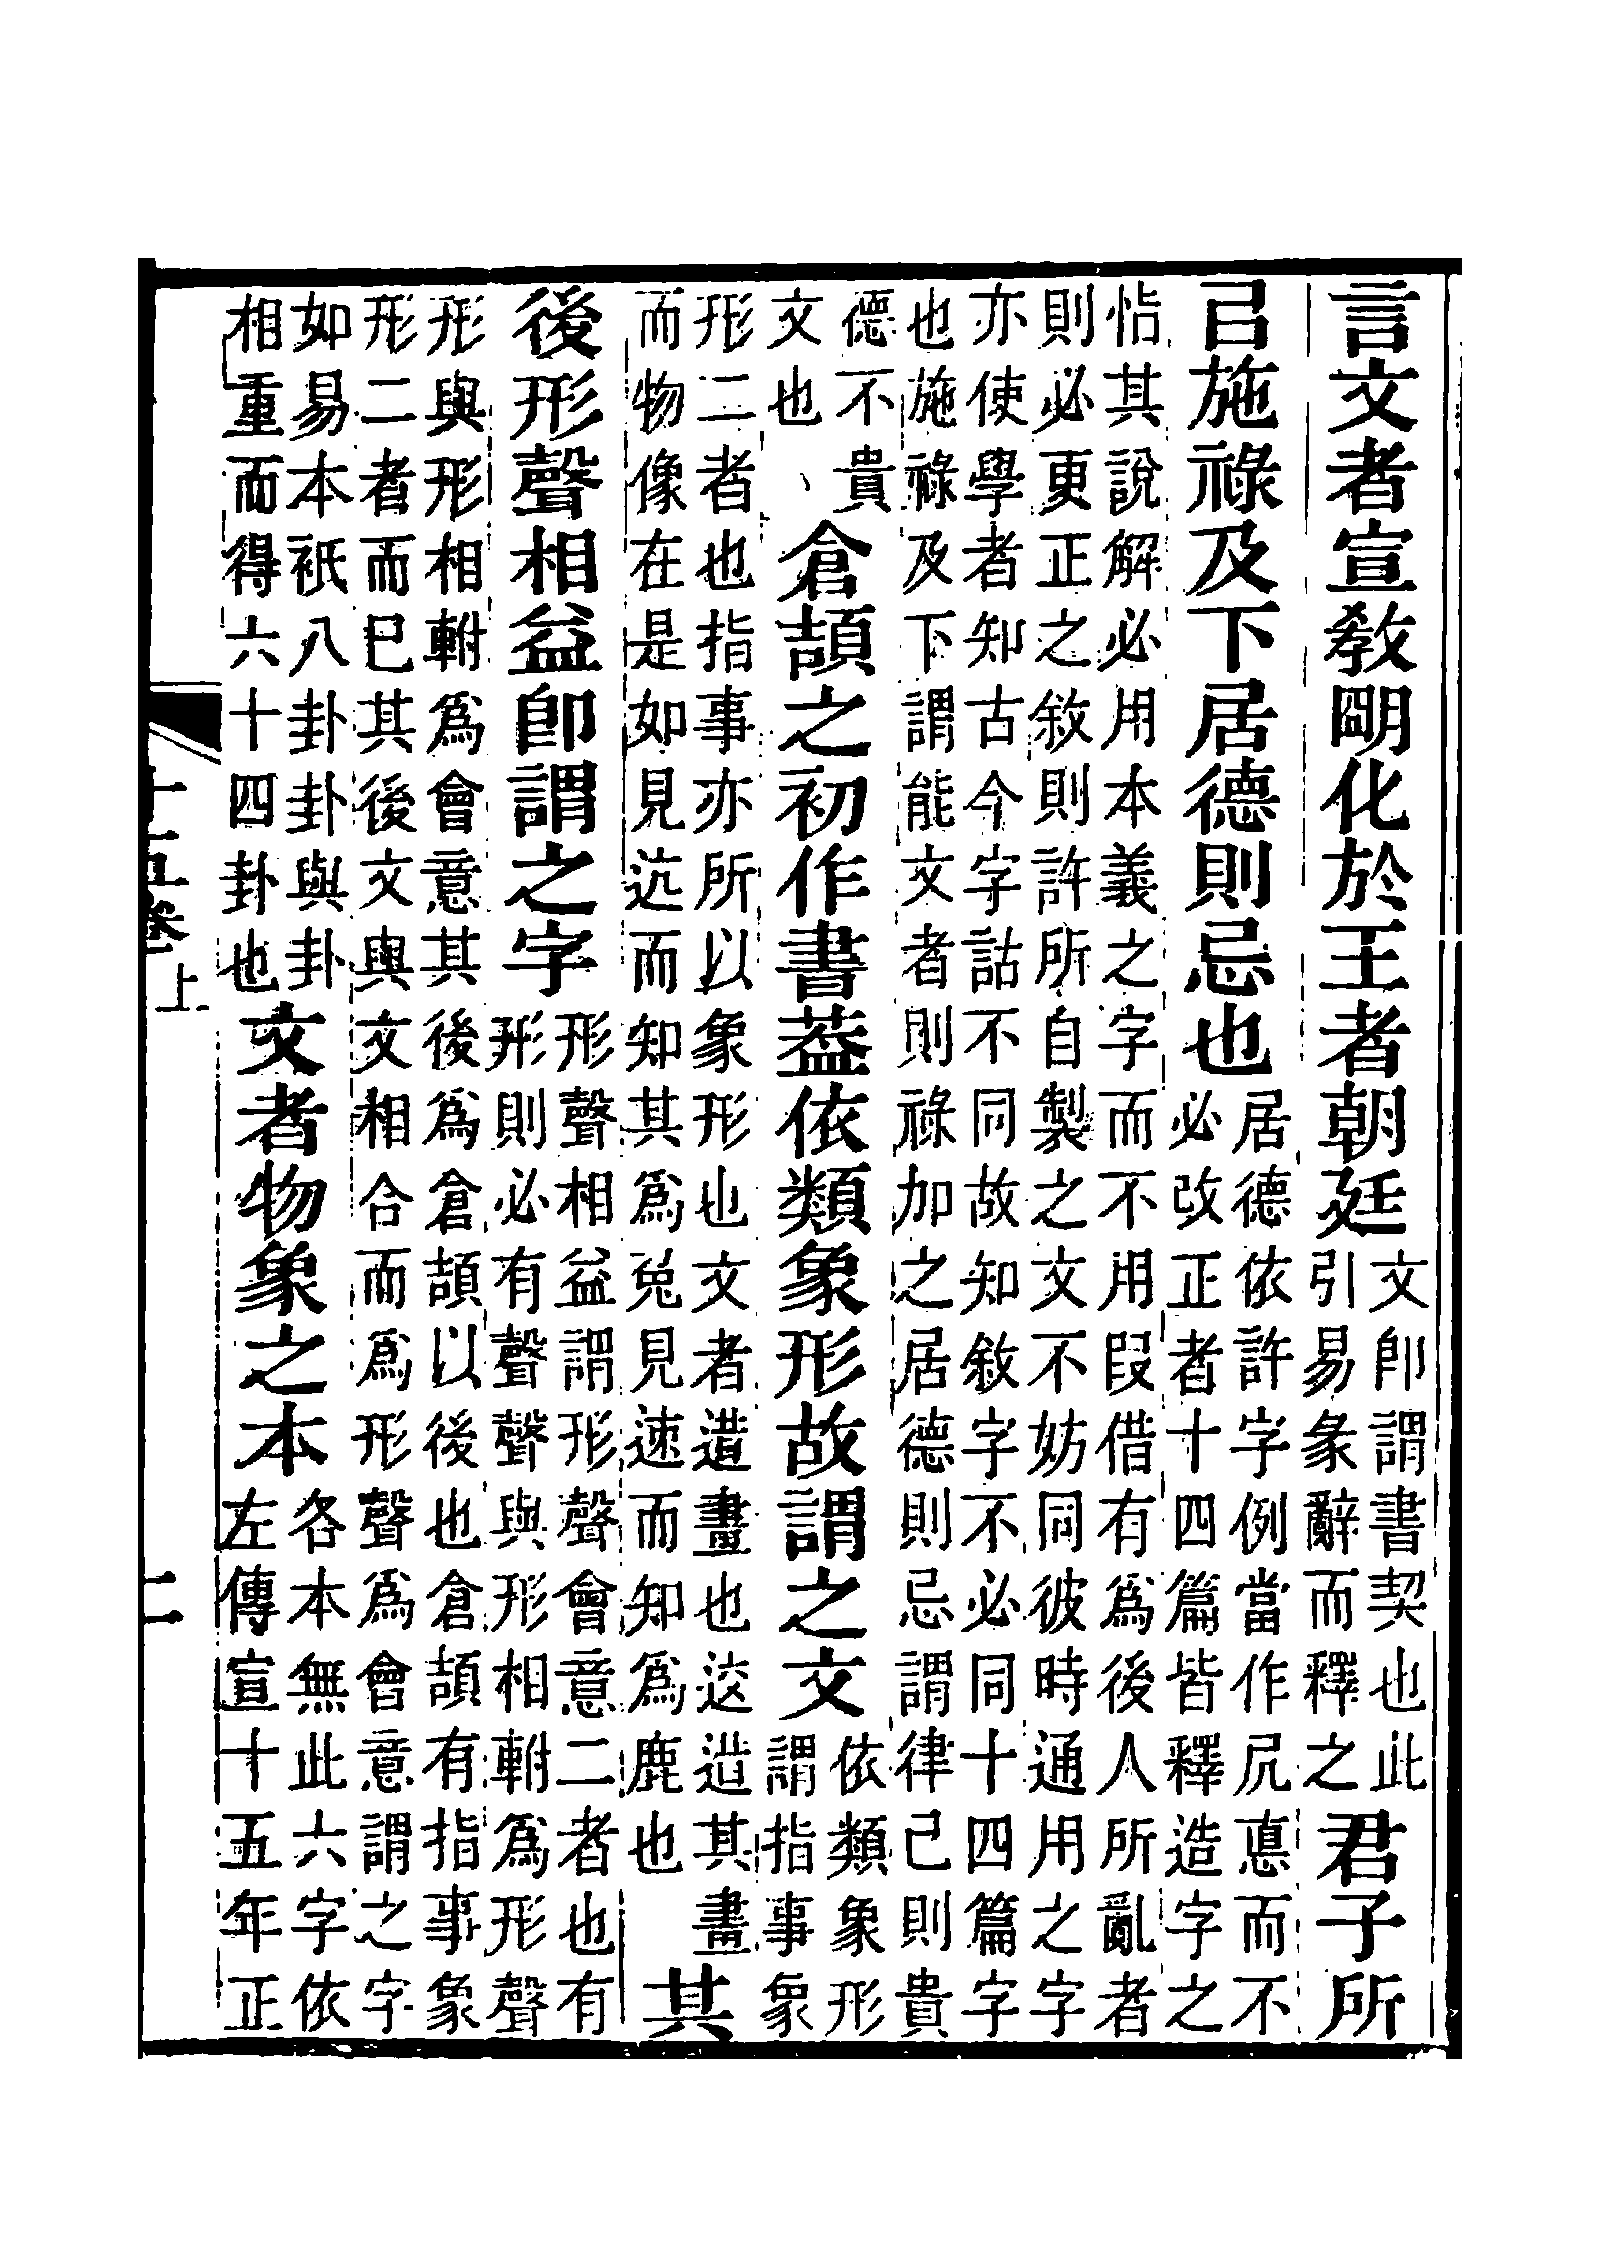 言文者宣敎朙化於王者朝廷文卽謂書契也此
引易彖辭而釋之君子所
㠯施祿及下居德則忌也居德依許字例當作凥悳而不
必改正者十四篇皆釋造字之
怗其說解必用本義之字而不用叚借有爲後人所亂者
則必更正之敘則許所自製之文不妨同彼時通用之字
亦使學者知古今字詁不同故知敘字不必同十四篇字
也施祿及下謂能文者則祿加之居德則忌謂律己則貴
德不貴
文也倉頡之初作書葢依類象形故謂之文依類象形
謂指事象
形二者也指事亦所以象形也文者遣畫也迻遣其畫
而物像在是如見迒而知其爲兔見速而知爲鹿也其
後形聲相益卽謂之字形聲相益謂形聲會意二者也有
形則必有聲聲與形相軵爲形聲
形與形相軵爲會意其後爲倉頡以後也倉頡有指事象
形二者而巳其後文與文相合而爲形聲爲會意謂之字
如易本衹八卦卦與卦
相重而得六十四卦也文者物象之本各本無此六字依
左傳宣十五年正
十五卷上
二